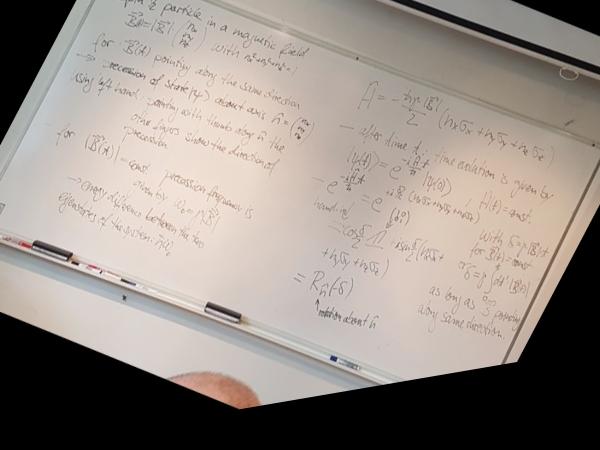 spin ½ particle in a magnetic field
B⃗(t) = |B⃗| (nx ny nz) with nx²+ny²+nz²=1
for B⃗(t) pointing along the same direction
→ precession of state |ψ⟩ about axis n̂ = (nx ny nz)
using left hand, pointing with thumb along n̂ the
other fingers show the direction of
precession
for |B⃗(t)| = const precession frequency is
given by ω₀ = γ|B⃗|
→ energy difference between the two
eigenstates of the system: ħω₀
Ĥ = -ħγ|B⃗|/2 (nxσx + nyσy + nzσz)
– after time t, time evolution is given by
|ψ(t)⟩ = e^(-iĤt/ħ) |ψ(0)⟩ Ĥ(t)=const.
– e^(-iĤt/ħ) = e^(+iδ/2 (nxσx+nyσy+nzσz)) with δ=γ|B⃗|t
for B⃗(t)=const
= cos δ/2 𝟙 + i sin δ/2 (nxσx +
+ nyσy + nzσz) δ=γ∫dt' |B⃗(t')|
= Rn̂(-δ) as long as B⃗ pointing
along same direction.
↑ rotation about n̂